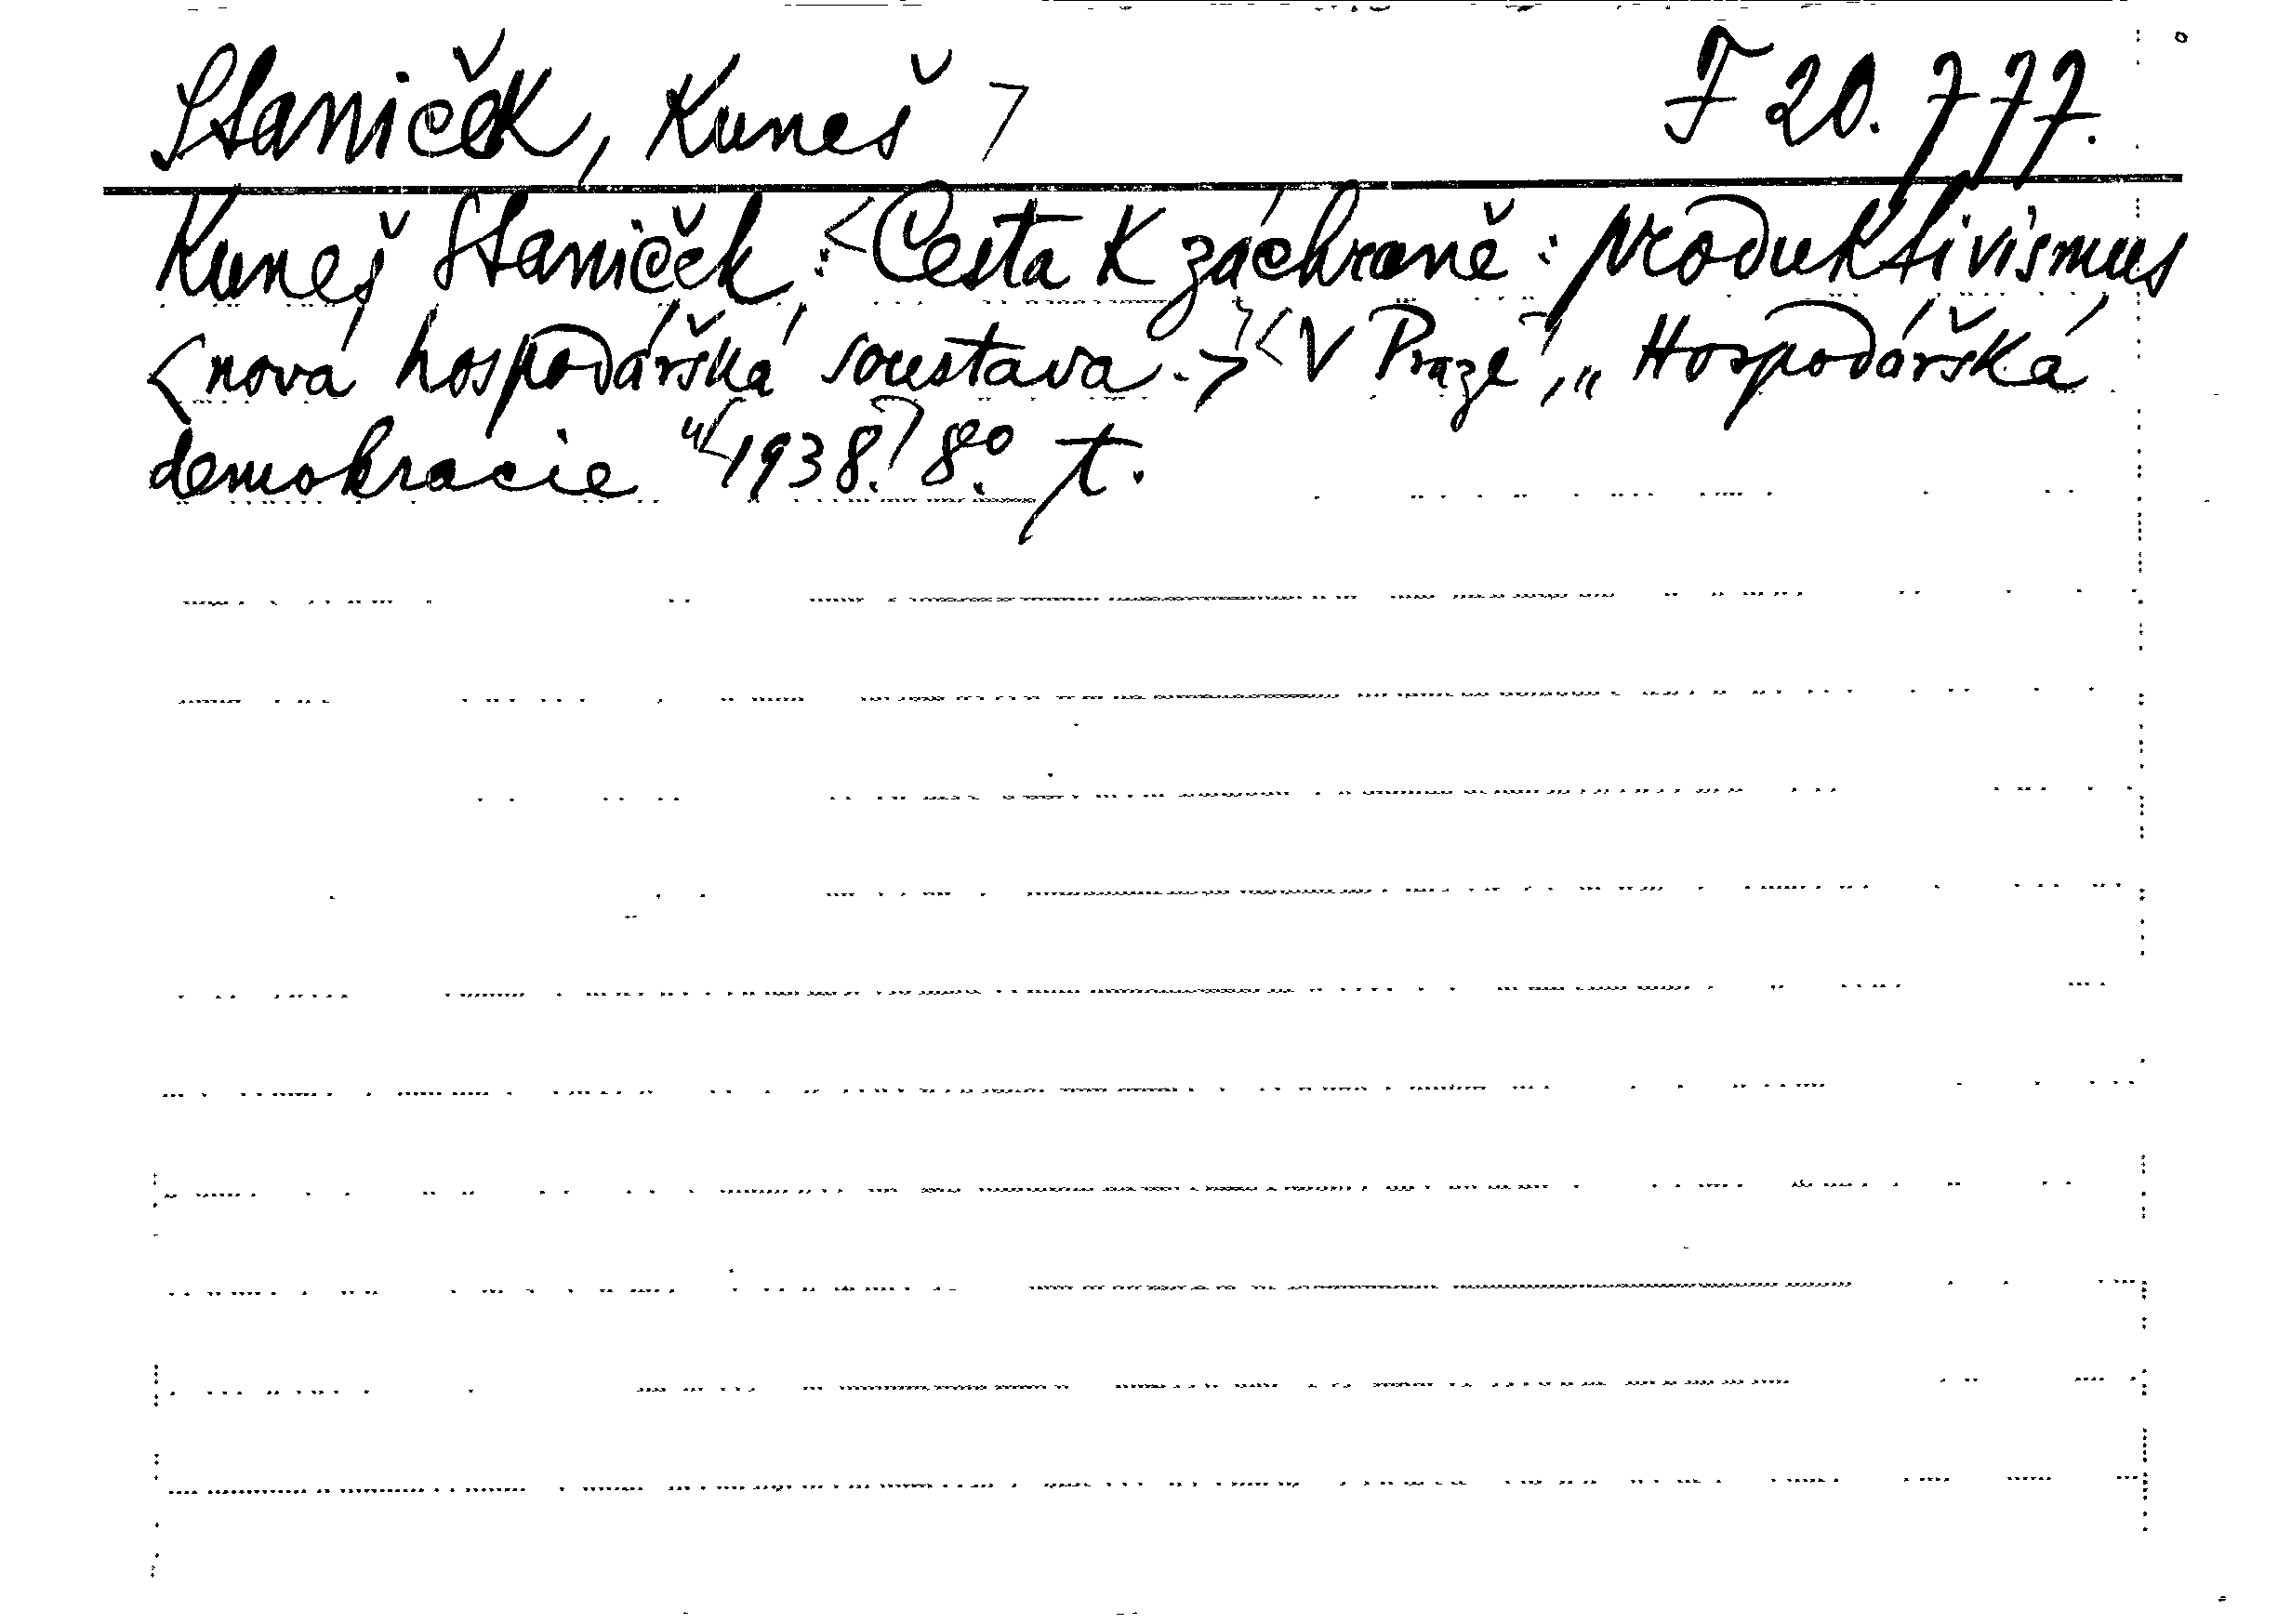 Staniček, Kuneš > F 20.777.
Kuneš Staniček: <Cesta k záchraně: produktivismus
<nová hospodářská soustava.> <V Praze, „Hospodářská
demokracie" <1938.> 8° t.